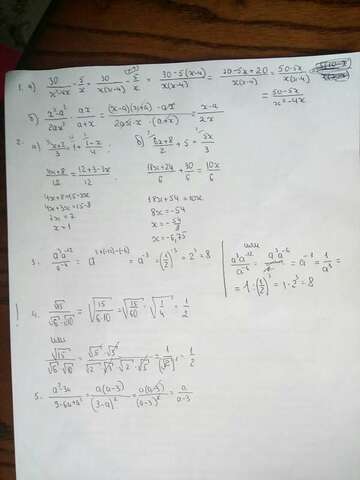 1. а) 30/(x²-4x) - 5/x = 30/(x(x-4)) - 5/x = (30-5(x-4))/(x(x-4)) = (30-5x+20)/(x(x-4)) = (50-5x)/(x(x-4))
= (50-5x)/(x²-4x)
б) (x²-a²)/(2ax²) · ax/(a+x) = ((x-a)(x+a)·ax)/(2ax·x·(a+x)) = (x-a)/(2x)
2.
а) (3x+2)/3 = 1 + (1-x)/4 б) (6x+8)/2 + 5 = 5x/3
(4x+8)/12 = (12+3-3x)/12 (18x+24)/6 + 30/6 = 10x/6
4x+8=15-3x 18x+54=10x
4x+3x=15-8 8x=-54
7x=7 x=-54/8
x=1 x=-6,75
3. (a³a⁻¹²)/a⁻⁶ = a^(3+(-12)-(-6)) = a⁻³ = (1/2)⁻³ = 2³ = 8
или
(a³a⁻¹²)/a⁻⁶ = a⁻³ = 1/a³
= 1:(1/2)³ = 1·2³ = 8
! 4. √15/(√6·√10) = √(15/(6·10)) = √(15/60) = √(1/4) = 1/2
или
√15/(√6·√10) = (√5·√3)/(√2·√3·√2·√5) = 1/(√2)² = 1/2
5. (a²-3a)/(9-6a+a²) = a(a-3)/(3-a)² = a(a-3)/(a-3)² = a/(a-3)